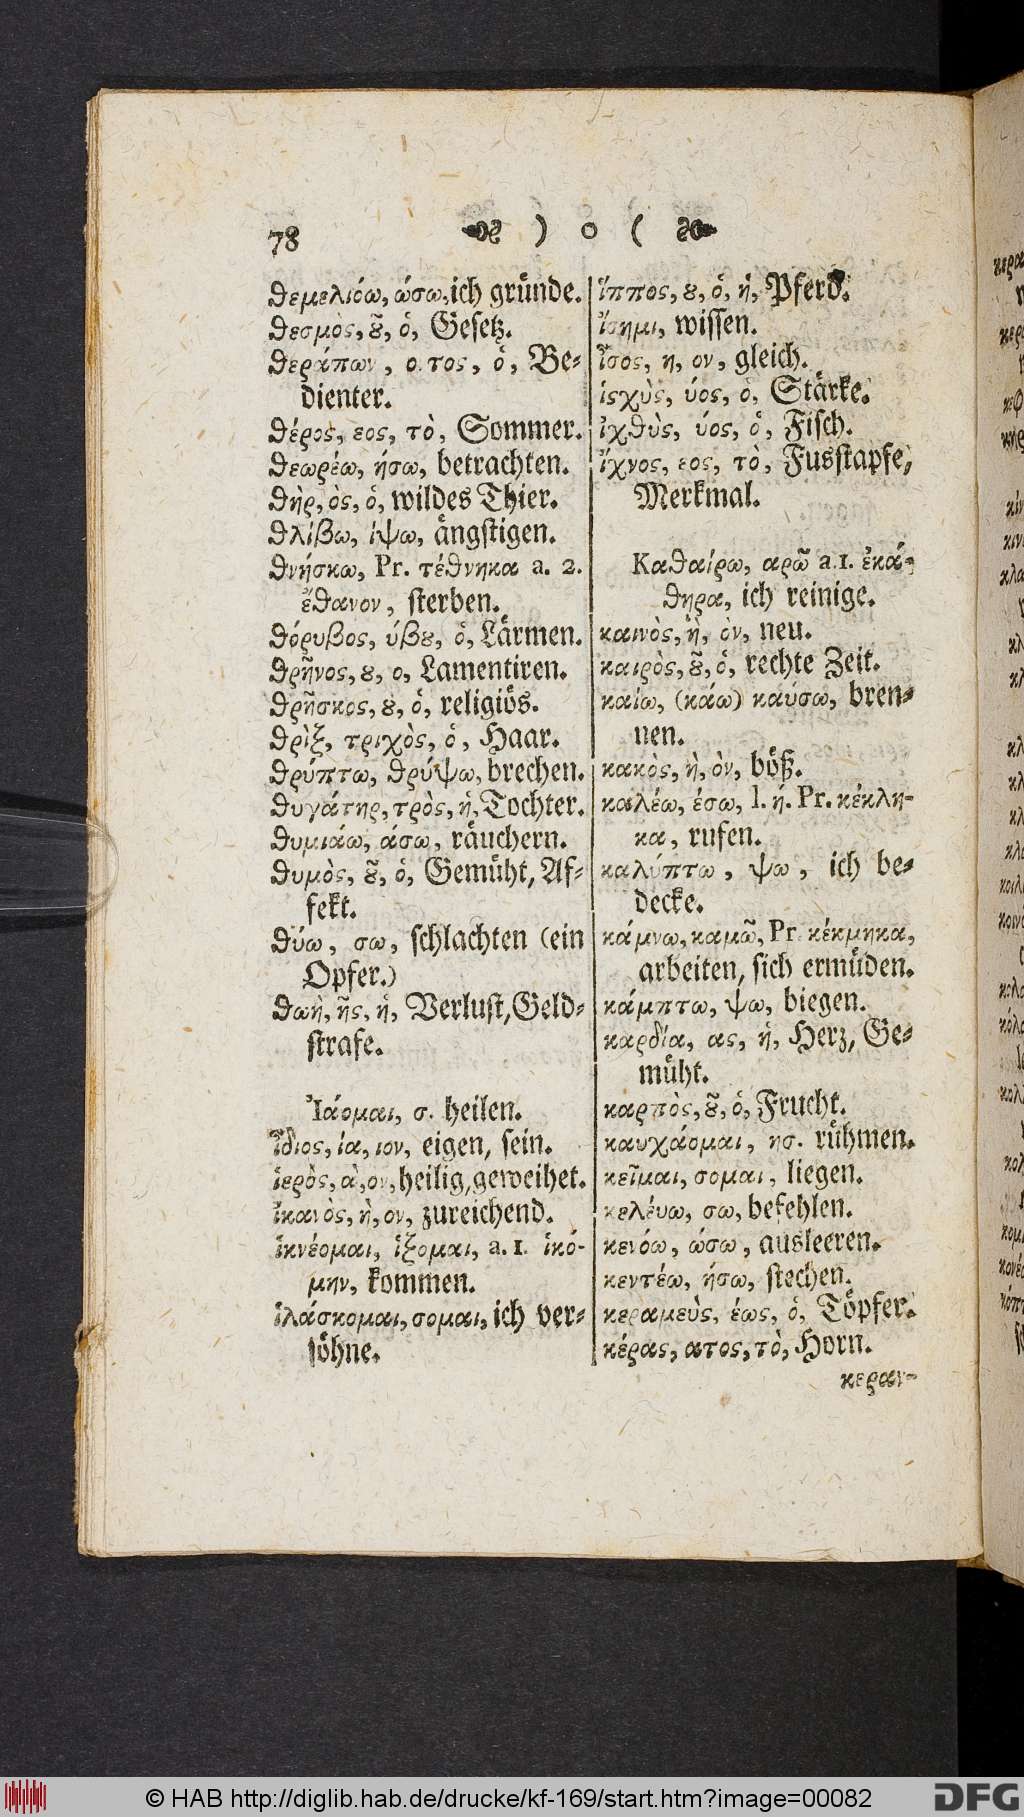 78 ) o (
θεμελιόω, ώσω, ich gründe.
θεσμὸς, ȣ̃, ὁ, Gesetz.
θεράπων, ο.τος, ὁ, Be-
dienter.
θέρος, εος, τὸ, Sommer.
θεωρέω, ήσω, betrachten.
θὴρ, ὸς, ὁ, wildes Thier.
θλίβω, ίψω, ängstigen.
θνήσκω, Pr. τέθνηκα a. 2.
ἔθανον, sterben.
θόρυβος, ύβȣ, ὁ, Lärmen.
θρῆνος, ȣ, ο, Lamentiren.
θρῆσκος, ȣ, ὁ, religiös.
θρὶξ, τριχὸς, ὁ, Haar.
θρύπτω, θρύψω, brechen.
θυγάτηρ, τρὸς, ἡ, Tochter.
θυμιάω, άσω, räuchern.
θυμὸς, ȣ̃, ὁ, Gemüht, Af-
fekt.
θύω, σω, schlachten (ein
Opfer.)
θωὴ, ῆς, ἡ, Verlust, Geld-
strafe.
Ἰάομαι, σ. heilen.
ἴδιος, ία, ιον, eigen, sein.
ἱερὸς, ὰ, ον, heilig, geweihet.
ἱκανὸς, ὴ, ον, zureichend.
ἱκνέομαι, ἵξομαι, a. 1. ἱκό-
μην, kommen.
ἱλάσκομαι, σομαι, ich ver-
söhne.
ἵππος, ȣ, ὁ, ἡ, Pferd.
ἴσημι, wissen.
ἶσος, η, ον, gleich.
ἰσχὺς, ύος, ὁ, Stärke.
ἰχθὺς, ύος, ὁ, Fisch.
ἴχνος, εος, τὸ, Fusstapfe,
Merkmal.
Καθαίρω, αρῶ a. 1. ἐκά-
θηρα, ich reinige.
καινὸς, ὴ, ὸν, neu.
καιρὸς, ȣ̃, ὁ, rechte Zeit.
καίω, (κάω) καύσω, bren-
nen.
κακὸς, ὴ, ὸν, böß.
καλέω, έσω, l. ή. Pr. κέκλη-
κα, rufen.
καλύπτω, ψω, ich be-
decke.
κάμνω, καμῶ, Pr κέκμηκα,
arbeiten, sich ermüden.
κάμπτω, ψω, biegen.
καρδία, ας, ἡ, Herz, Ge-
müht.
καρπὸς, ȣ̃, ὁ, Frucht.
καυχάομαι, ησ. rühmen.
κεῖμαι, σομαι, liegen.
κελέυω, σω, befehlen.
κενόω, ώσω, ausleeren.
κεντέω, ήσω, stechen.
κεραμεὺς, έως, ὁ, Töpfer.
κέρας, ατος, τὸ, Horn.
κεραν-
© HAB http://diglib.hab.de/drucke/kf-169/start.htm?image=00082
DFG